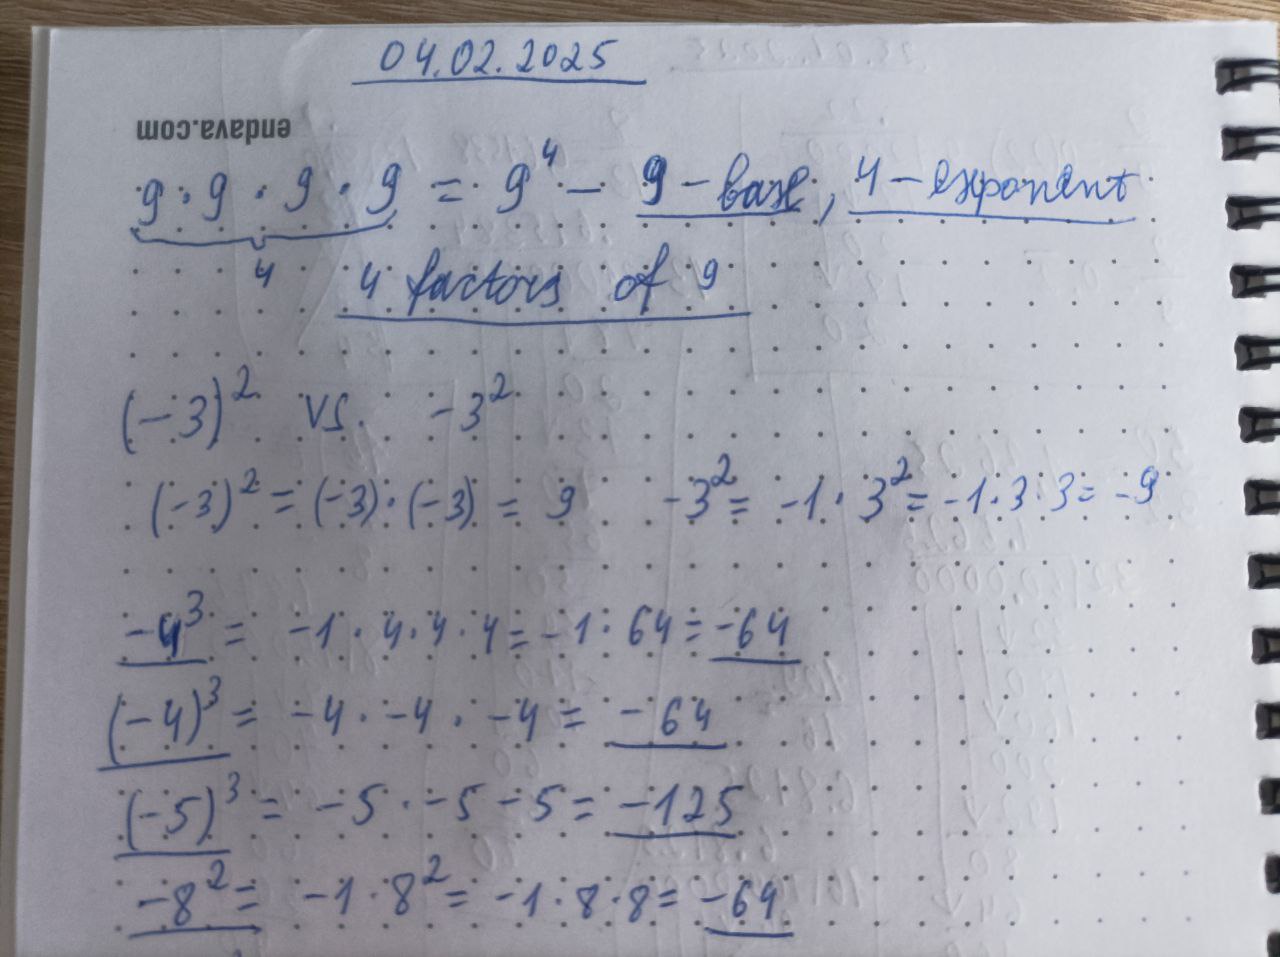 04.02.2025
endava.com
9 · 9 · 9 · 9 = 9⁴ – 9 – base, 4 – exponent
4 4 factors of 9
(-3)² vs. -3²
(-3)² = (-3) · (-3) = 9 -3² = -1 · 3² = -1 · 3 · 3 = -9
-4³ = -1 · 4 · 4 · 4 = -1 · 64 = -64
(-4)³ = -4 · -4 · -4 = -64
(-5)³ = -5 · -5 -5 = -125
-8² = -1 · 8² = -1 · 8 · 8 = -64